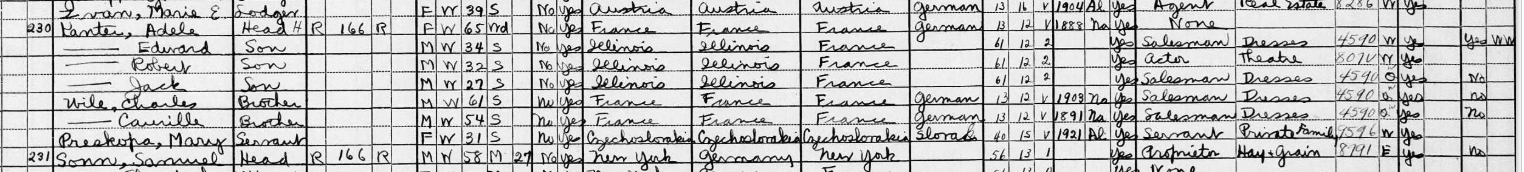 Ivan, Marie E Lodger F W 39 S No Yes Austria Austria Austria German 13 16 V 1904 Al Yes Agent Real Estate 8286 W Yes
230 Kanter, Adele Head H R 166 R F W 65 Wd No Yes France France France German 13 12 V 1888 Na Yes None
—— Edward Son M W 34 S No Yes Illinois Illinois France 61 12 2 Yes Salesman Dresses 4590 W Yes Yes WW
—— Robert Son M W 32 S No Yes Illinois Illinois France 61 12 2 Yes Actor Theatre W Yes
—— Jack Son M W 27 S No Yes Illinois Illinois France 61 12 2 Yes Salesman Dresses 4590 O Yes No
Wile, Charles Brother M W 61 S No Yes France France France German 13 12 V 1903 Na Yes Salesman Dresses 4590 O Yes No
—— Camille Brother M W 54 S No Yes France France France German 13 12 V 1891 Na Yes Salesman Dresses 4590 O Yes No
Preskopa, Mary Servant F W 31 S No Yes Czechoslovakia Czechoslovakia Czechoslovakia Slovak 40 15 V 1921 Al Yes Servant Private Family 7596 W Yes
231 Sonn, Samuel Head R 166 R M W 58 M 27 No Yes New York Germany New York 56 13 1 Yes Proprietor Hay & Grain 8791 E Yes No